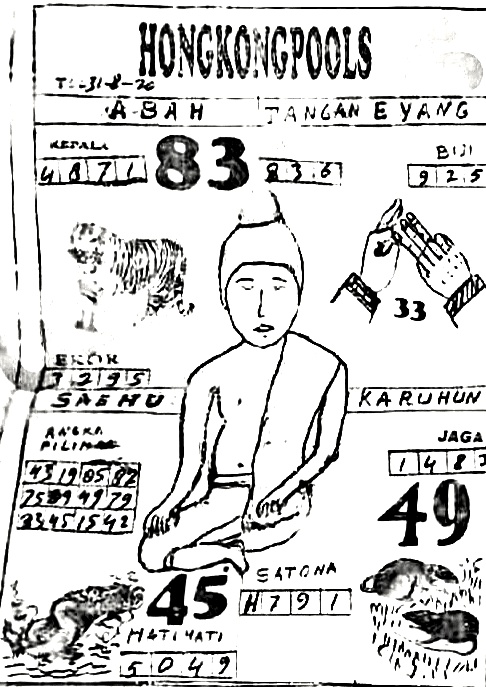 HONGKONGPOOLS
TL-31-8-26
ABAH TANGAN EYANG
KEPALA
4871
83
836
BIJI
925
33
EKOR
3295
SAEHU KARUHUN
ANGKA
PILIHAN
43 19 05 82
75 89 49 79
33 45 15 42
JAGA
1483
49
45
SATONA
H791
HATI HATI
5049